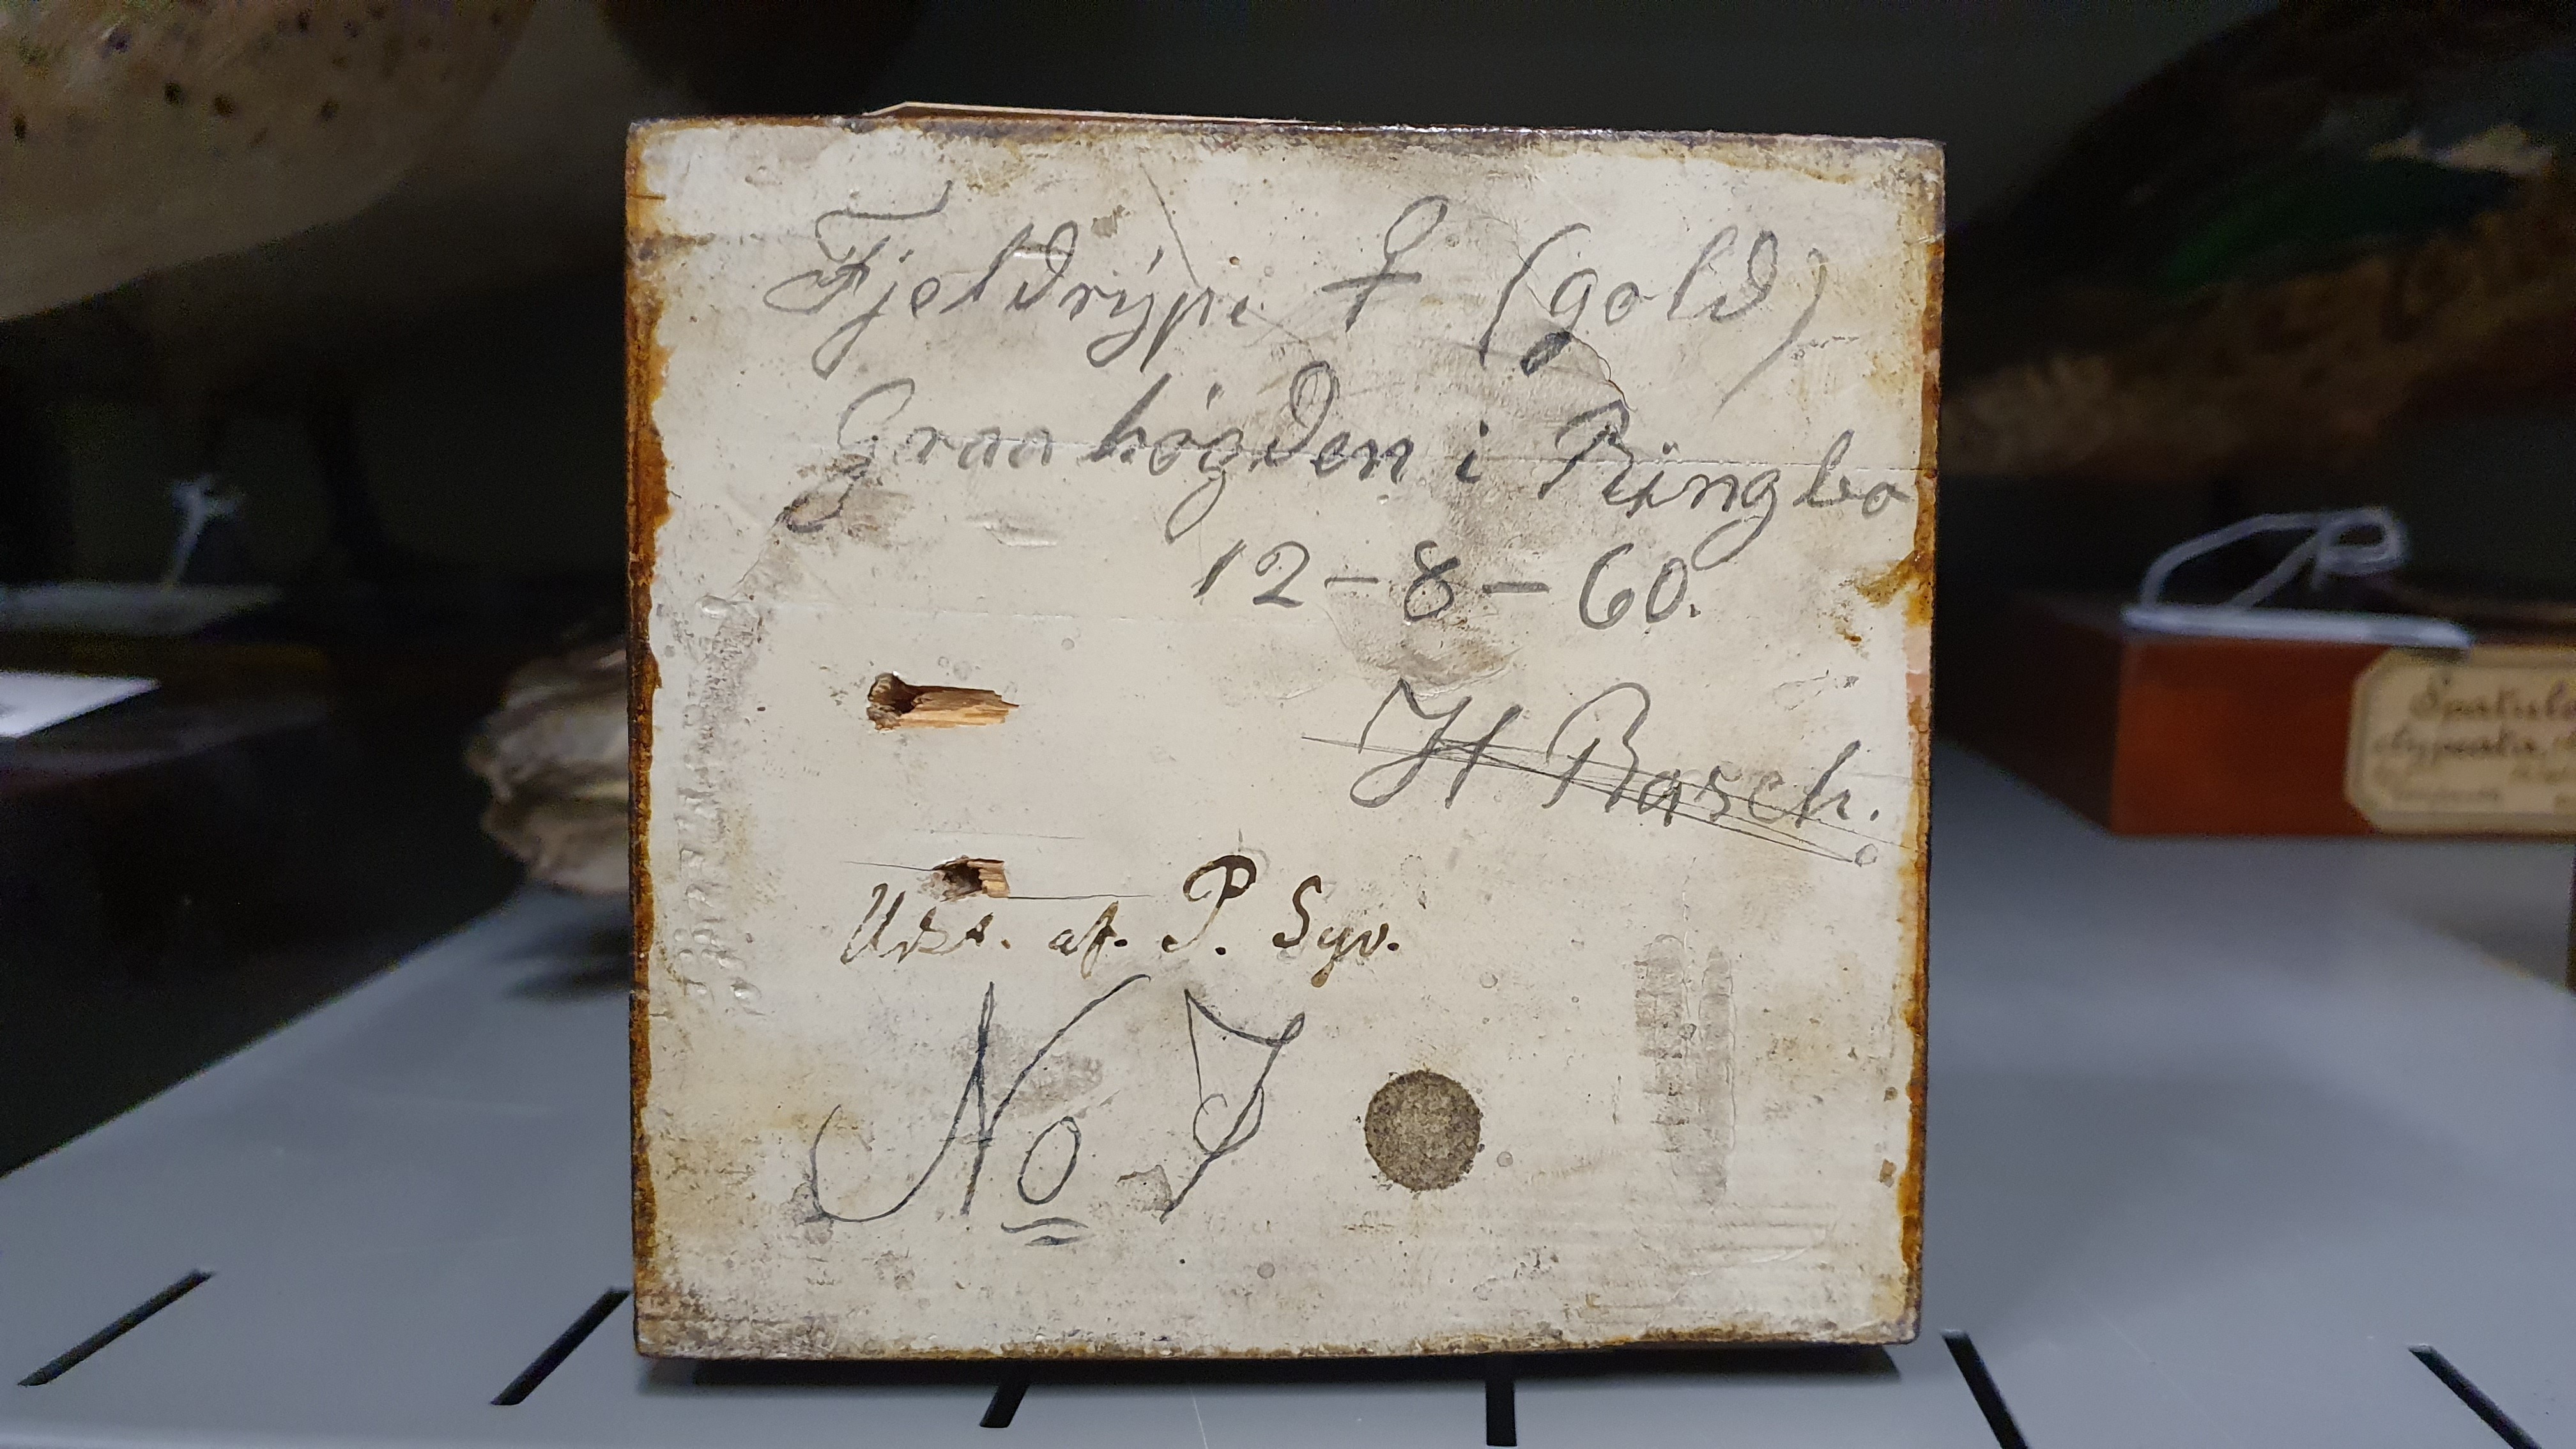 Fjeldrýpe ♀ (gold)
Graahögden i Ringbo
12-8-60.
H Rasch.
Udst. af. P. Syv.
No 7
Spatula
clypeata